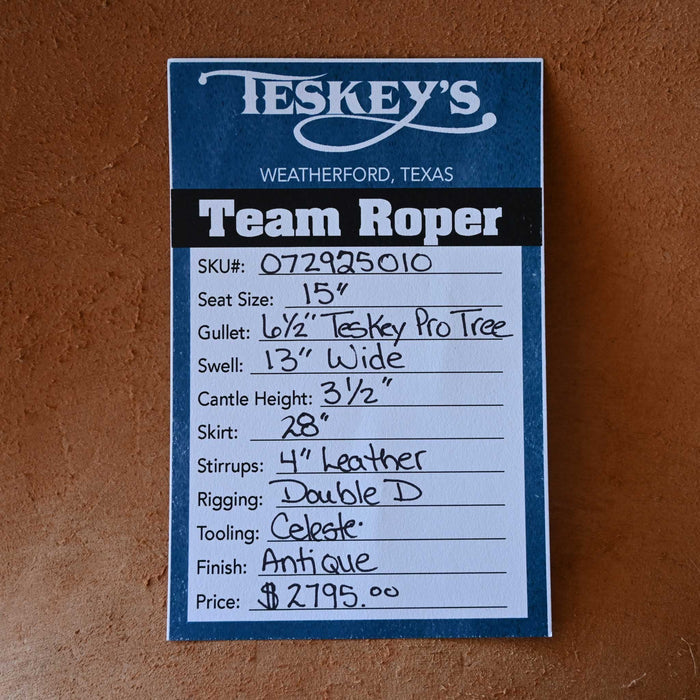 TESKEY'S
WEATHERFORD, TEXAS
Team Roper
SKU#: 072925010
Seat Size: 15"
Gullet: 6½" Teskey Pro Tree
Swell: 13" Wide
Cantle Height: 3½"
Skirt: 28"
Stirrups: 4" Leather
Rigging: Double D
Tooling: Celeste
Finish: Antique
Price: $2795.00